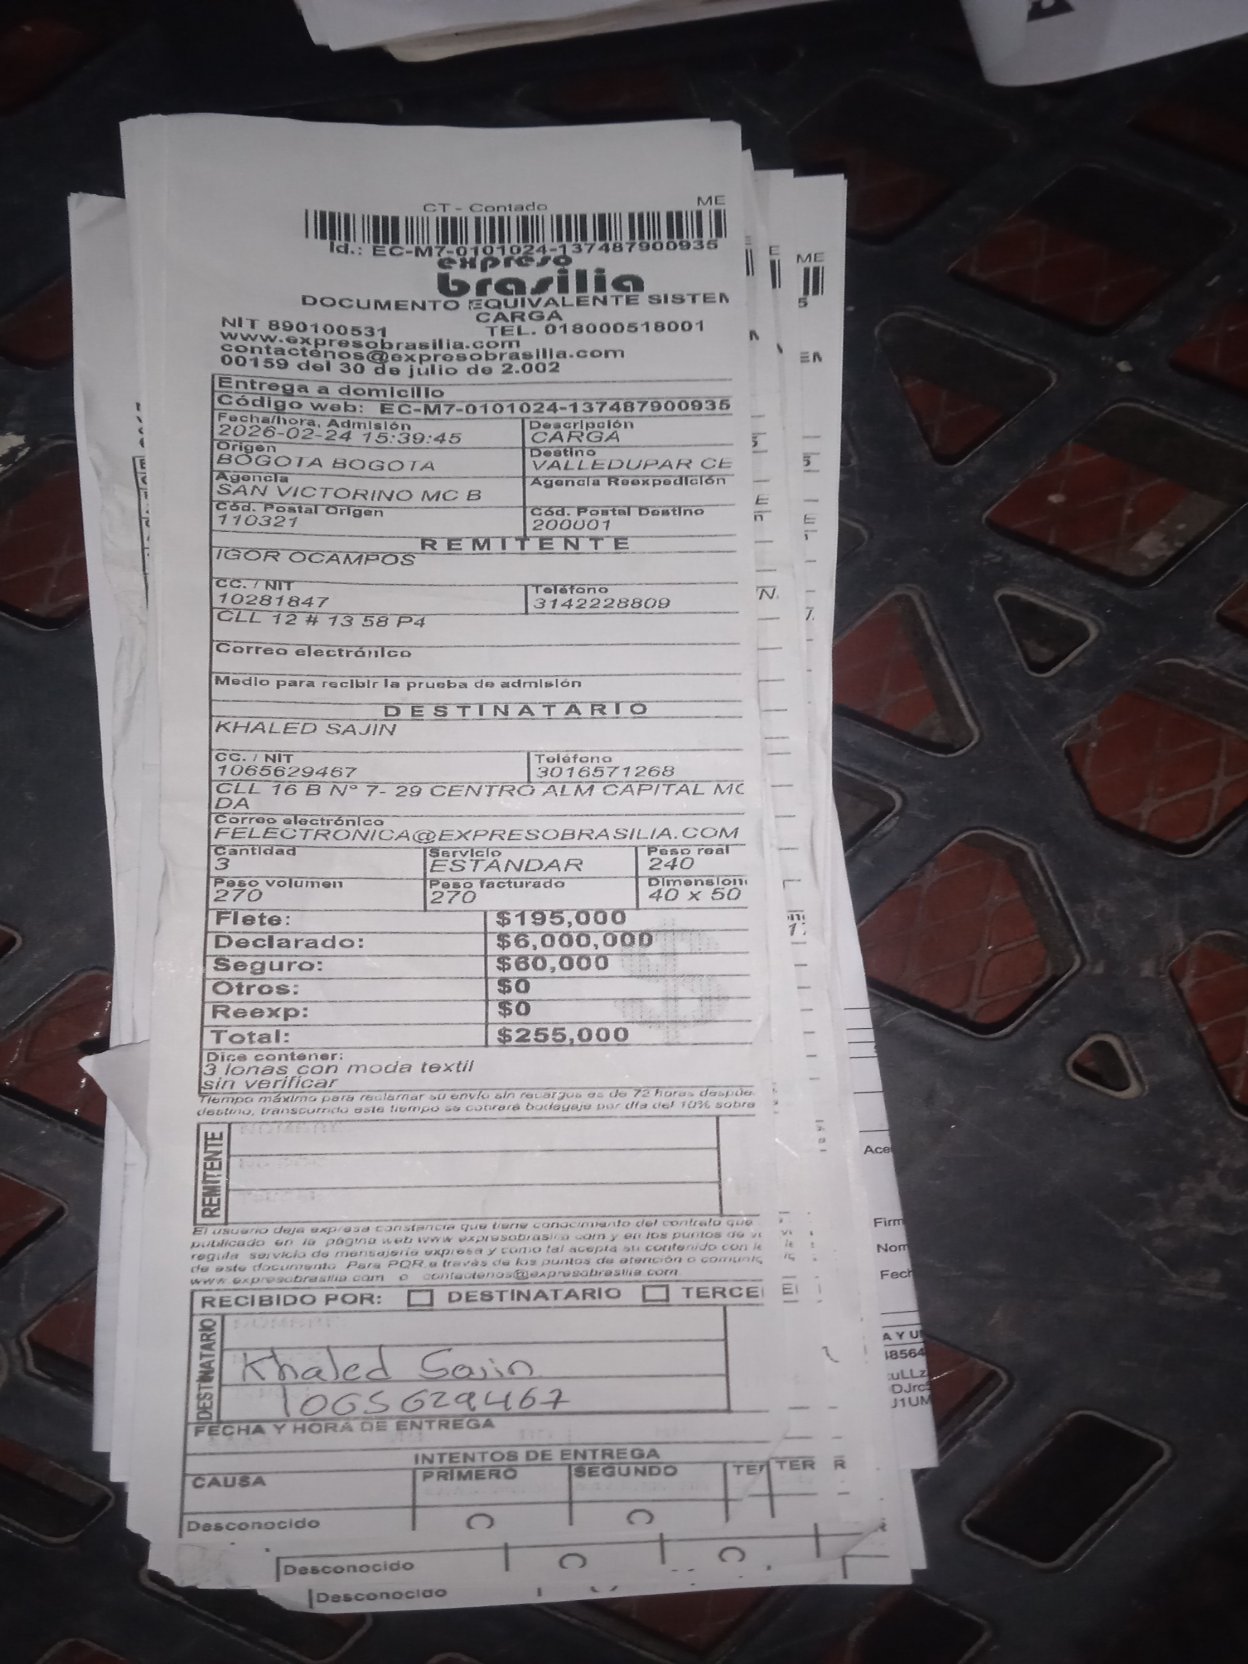 CT - Contado ME
Id.: EC-M7-0101024-137487900935
expreso
brasilia
DOCUMENTO EQUIVALENTE SISTEM
CARGA
NIT 890100531 TEL. 018000518001
www.expresobrasilia.com
contactenos@expresobrasilia.com
00159 del 30 de julio de 2.002
Entrega a domicilio
Código web: EC-M7-0101024-137487900935
Fecha/hora, Admisión Descripción
2026-02-24 15:39:45 CARGA
Origen Destino
BOGOTA BOGOTA VALLEDUPAR CE
Agencia Agencia Reexpedición
SAN VICTORINO MC B
Cód. Postal Origen Cód. Postal Destino
110321 200001
REMITENTE
IGOR OCAMPOS
CC. / NIT Teléfono
10281847 3142228809
CLL 12 # 13 58 P4
Correo electrónico
Medio para recibir la prueba de admisión
DESTINATARIO
KHALED SAJIN
CC. / NIT Teléfono
1065629467 3016571268
CLL 16 B N° 7- 29 CENTRO ALM CAPITAL MO
DA
Correo electrónico
FELECTRONICA@EXPRESOBRASILIA.COM
Cantidad Servicio Peso real
3 ESTANDAR 240
Peso volumen Peso facturado Dimension
270 270 40 x 50
Flete: $195,000
Declarado: $6,000,000
Seguro: $60,000
Otros: $0
Reexp: $0
Total: $255,000
Dice contener:
3 lonas con moda textil
sin verificar
Tiempo máximo para reclamar su envío sin recargos es de 72 horas despúe
destino, transcurrido este tiempo se cobrará bodegaje por día del 10% sobre
REMITENTE
El usuario deja expresa constancia que tiene conocimiento del contrato que
publicado en la página web www.expresobrasilia.com y en los puntos de
regula servicio de mensajería expresa y como tal acepta su contenido con
de este documento. Para PQR a través de los puntos de atención o
www.expresobrasilia.com o contactenos@expresobrasilia.com
RECIBIDO POR: DESTINATARIO TERCE
DESTINATARIO
Khaled Sajin
1065629467
FECHA Y HORA DE ENTREGA
INTENTOS DE ENTREGA
CAUSA PRIMERO SEGUNDO TER TER R
Desconocido
Desconocido
Desconocido